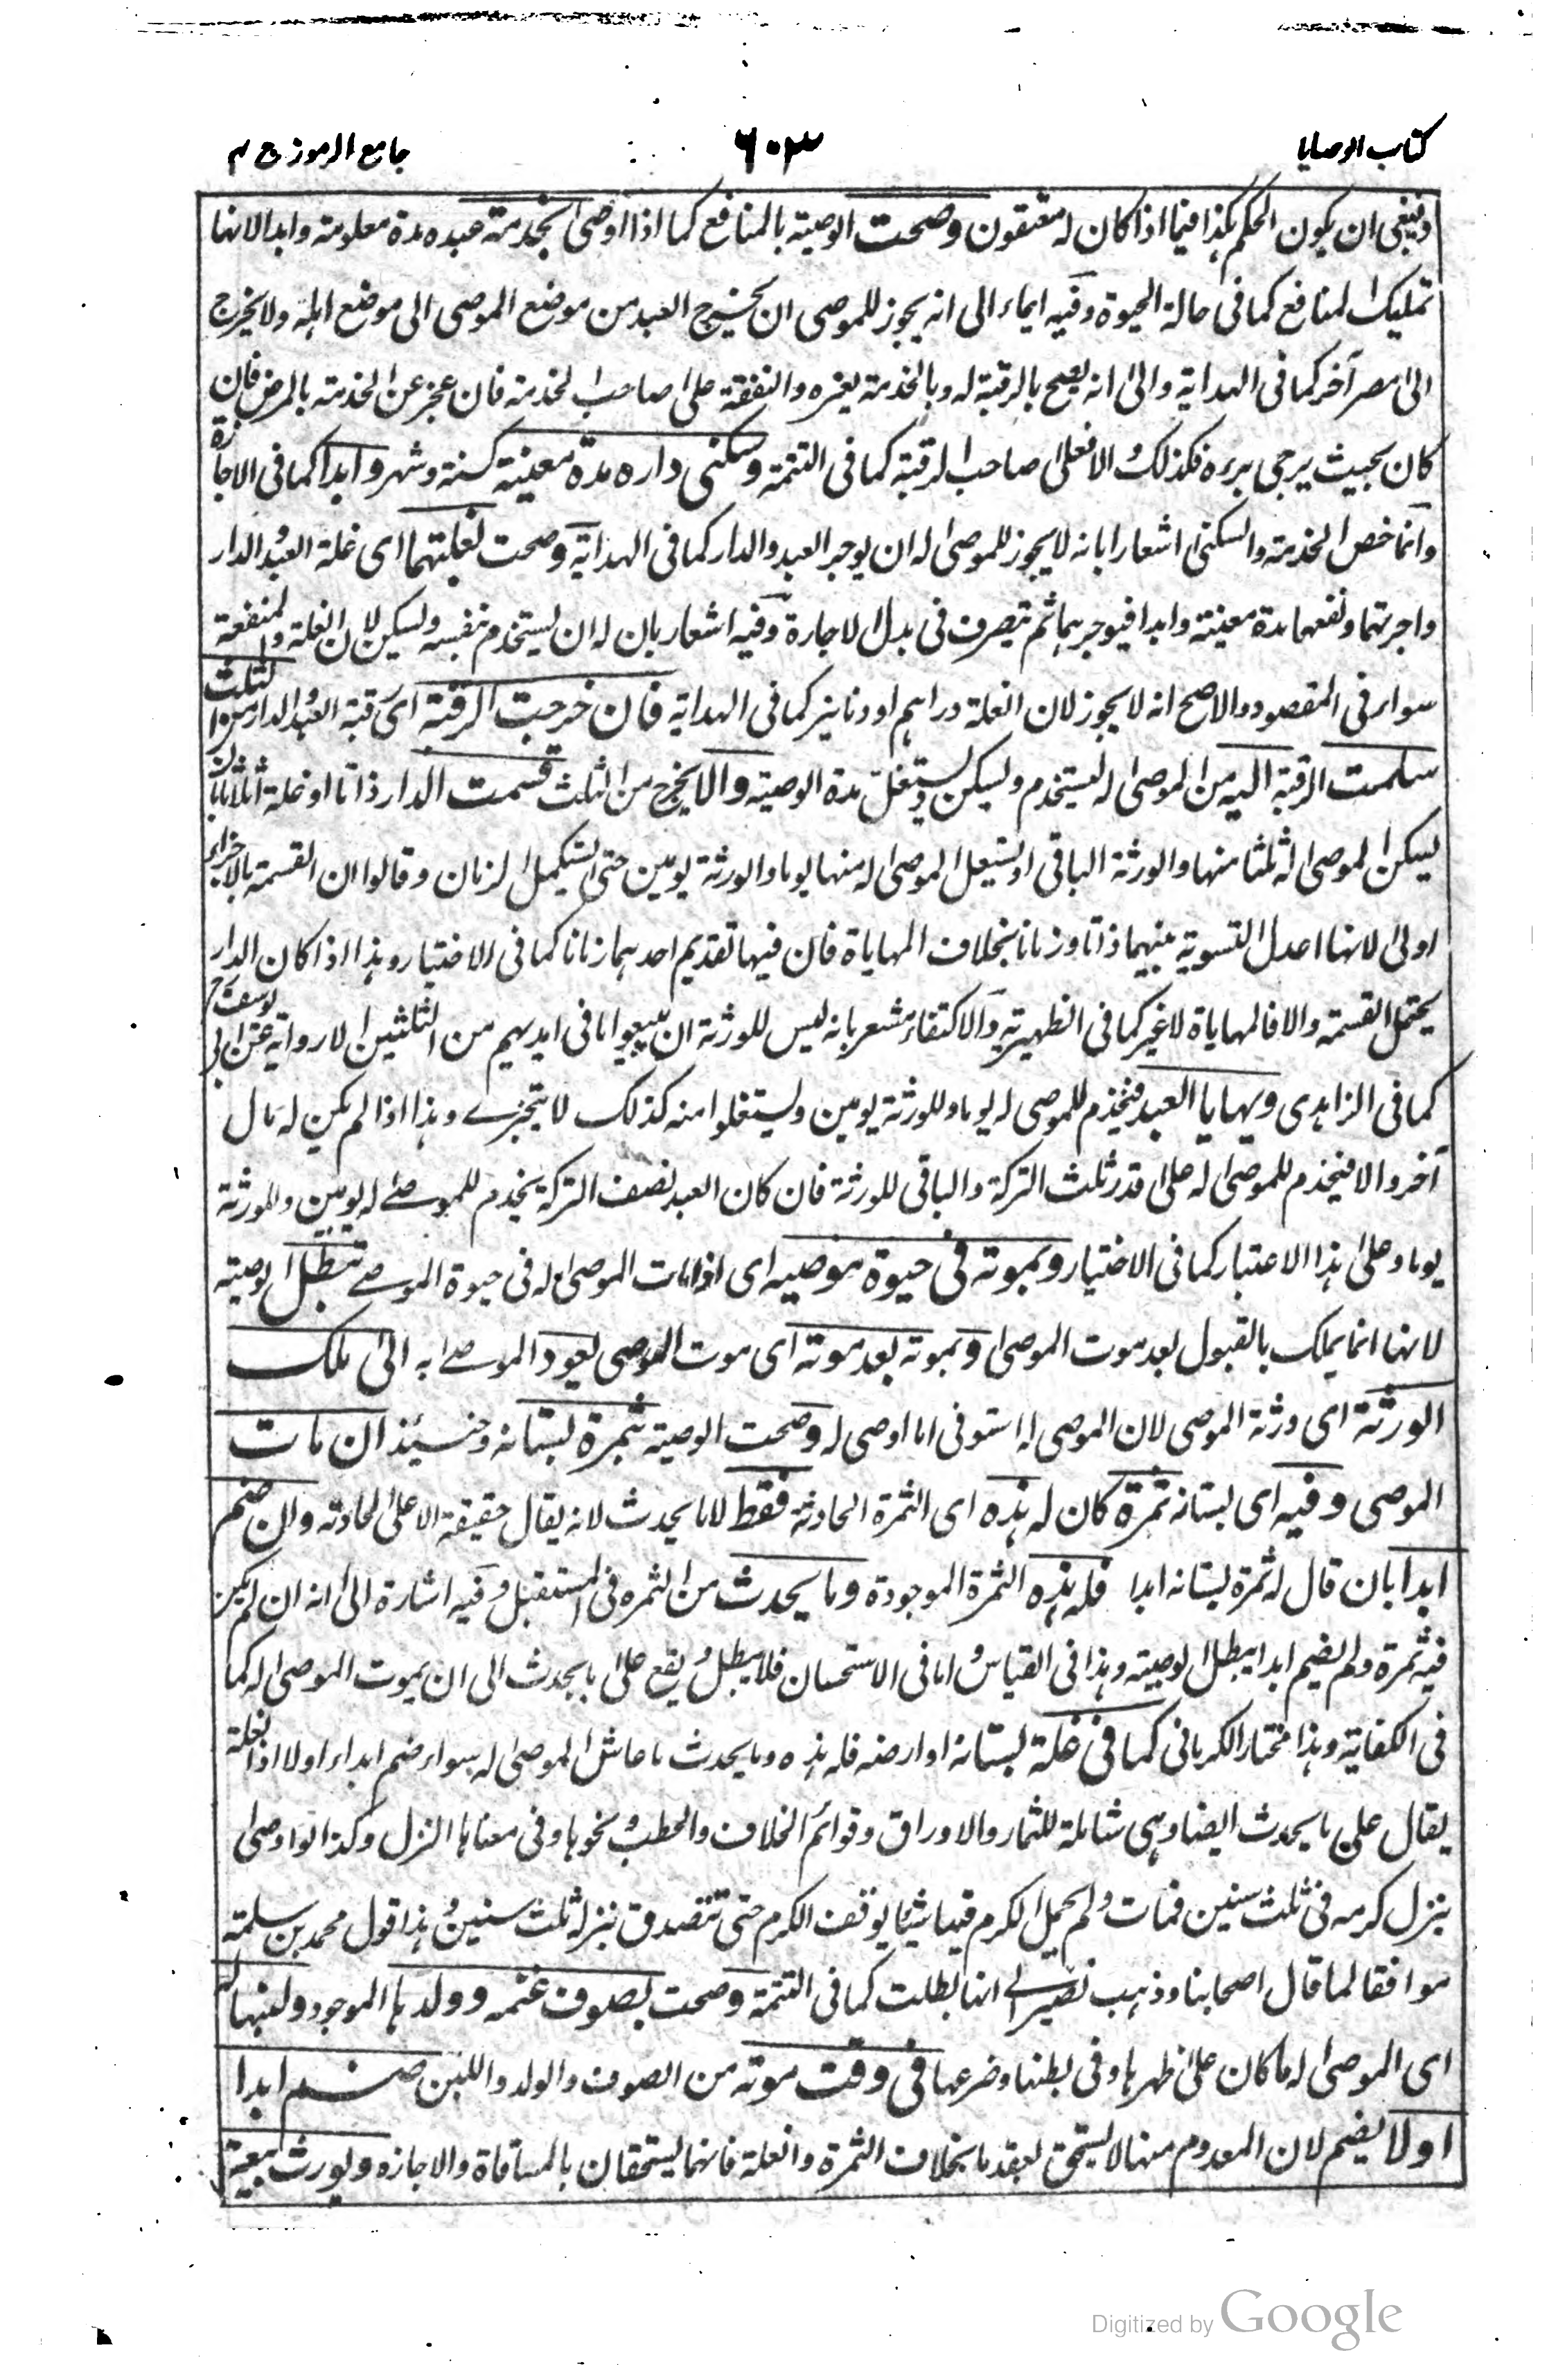 كتاب الوصايا
٦٠٣
جامع الرموز ج ٣
وينبغي ان يكون الحكم هكذا فيما اذا كان له معتقون وصحت الوصية بالمنافع كما اذا اوصى بخدمة عبده مدة معلومة وابدا لانها
تمليك المنافع كما في حالة الحيوة وفيه ايماء الى انه يجوز للموصى ان يخرج العبد من موضع الموصى الى موضع اهله ولا يخرج
الى مصر آخر كما في الهداية والى انه يصح بالرقبة له وبالخدمة بغيره والنفقة على صاحب الخدمة فان عجز عن الخدمة بالمرض فان
كان بحيث يرجى برءه فكذلك والا فعلى صاحب الرقبة كما في التتمة وسكنى داره مدة معينة كسنة وشهر وابدا كما في الاجارة
وانما خص الخدمة والسكنى اشعارا بانه لا يجوز للموصى له ان يوجر العبد والدار كما في الهداية وصحت لغلبتهما اى غلة العبد والدار
واجرتهما ونفعهما مدة معينة وابدا فيوجرهما ثم يتصرف في بدل الاجارة وفيه اشعار بان له ان يستخدم بنفسه ويسكن لان الغلة والمنفعة
سواء في المقصود والاصح انه لا يجوز لان الغلة دراهم او دنانير كما في الهداية فان خرجت الرقبة اى رقبة العبد والدار من الثلث
سلمت الرقبة اليه من الموصى له ليستخدم ويسكن ويستغل مدة الوصية والا يخرج من الثلث قسمت الدار ذاتا او غلة اثلاثا بان
يسكن الموصى له ثلثا منها والورثة الباقي او يستغل الموصى له منها يوما والورثة يومين حتى يستكمل الزمان وقالوا ان القسمة بالاجزاء
اولى لانها اعدل التسوية بينهما ذاتا وزمانا بخلاف المهاياة فان فيها تقديم احدهما زمانا كما في الاختيار وهذا اذا كان الدار
يحتمل القسمة والا فالمهاياة لا غير كما في الظهيرية والاكتفاء مشعر بانه ليس للورثة ان يبيعوا ما في ايديهم من الثلثين الا رواية عن ابى يوسف رح
كما في الزاهدى ويهايا العبد فيخدم للموصى له يوما وللورثة يومين ويستغلوا منه كذلك لا يتجزے وهذا اذا لم يكن له مال
آخر والا فيخدم للموصى له على قدر ثلث التركة والباقي للورثة فان كان العبد نصف التركة يخدم للموصے له يومين وللورثة
يوما وعلى هذا الاعتبار كما في الاختيار وبموته في حيوة موصيه اى اذا مات الموصى له في حيوة الموصے تبطل الوصية
لانها انما يملك بالقبول بعد موت الموصى وبموته بعد موته اى موت الموصى يعود الموصے به الى ملك
الورثة اى ورثة الموصى لان الموصى له استوفى ما اوصى له وصحت الوصية بثمرة بستانه وحينئذ ان مات
الموصى وفيه اى بستانه ثمرة كان له هذه اى الثمرة الحادثة فقط لا ما يحدث لانه يقال حقيقة الا على الحادثه وان ضم
ابدا بان قال له ثمرة بستانه ابدا فله هذه الثمرة الموجودة وما يحدث من الثمره في المستقبل وفيه اشارة الى انه ان لم يكن
فيه ثمرة ولم يضم ابدا يبطل الوصية وهذا في القياس واما في الاستحسان فلا يبطل ويقع على ما يحدث الى ان يموت الموصى له كما
في الكفاية وهذا مختار الكرمانى كما في غلة بستانه او ارضه فله هذه وما يحدث ما عاش الموصى له سواء ضم ابدا اولا اذ الغلة
يقال على ما يحدث ايضا وهى شاملة للثمار والاوراق وقوائم الخلاف والحطب ونحوها وفي معناها النزل وكذا لو اوصى
بنزل كرمه في ثلث سنين فمات ولم يحمل الكرم فيها شيئا يوقف الكرم حتى تتصدق بنزله ثلث سنين وهذا قول محمد بن سلمة
موافقا لما قال اصحابنا وذهب نصير الى انها بطلت كما في التتمة وصحت بصوف غنمه وولدها الموجود ولبنها له
اى الموصى له ما كان على ظهرها وفي بطنها وضرعها في وقت موته من الصوف والولد واللبن ضم ابدا
اولا يضم لان المعدوم منها لا يستحق بعقد ما بخلاف الثمرة والغلة فانهما يستحقان بالمساقاة والاجازه ويورث بيعة
Digitized by Google